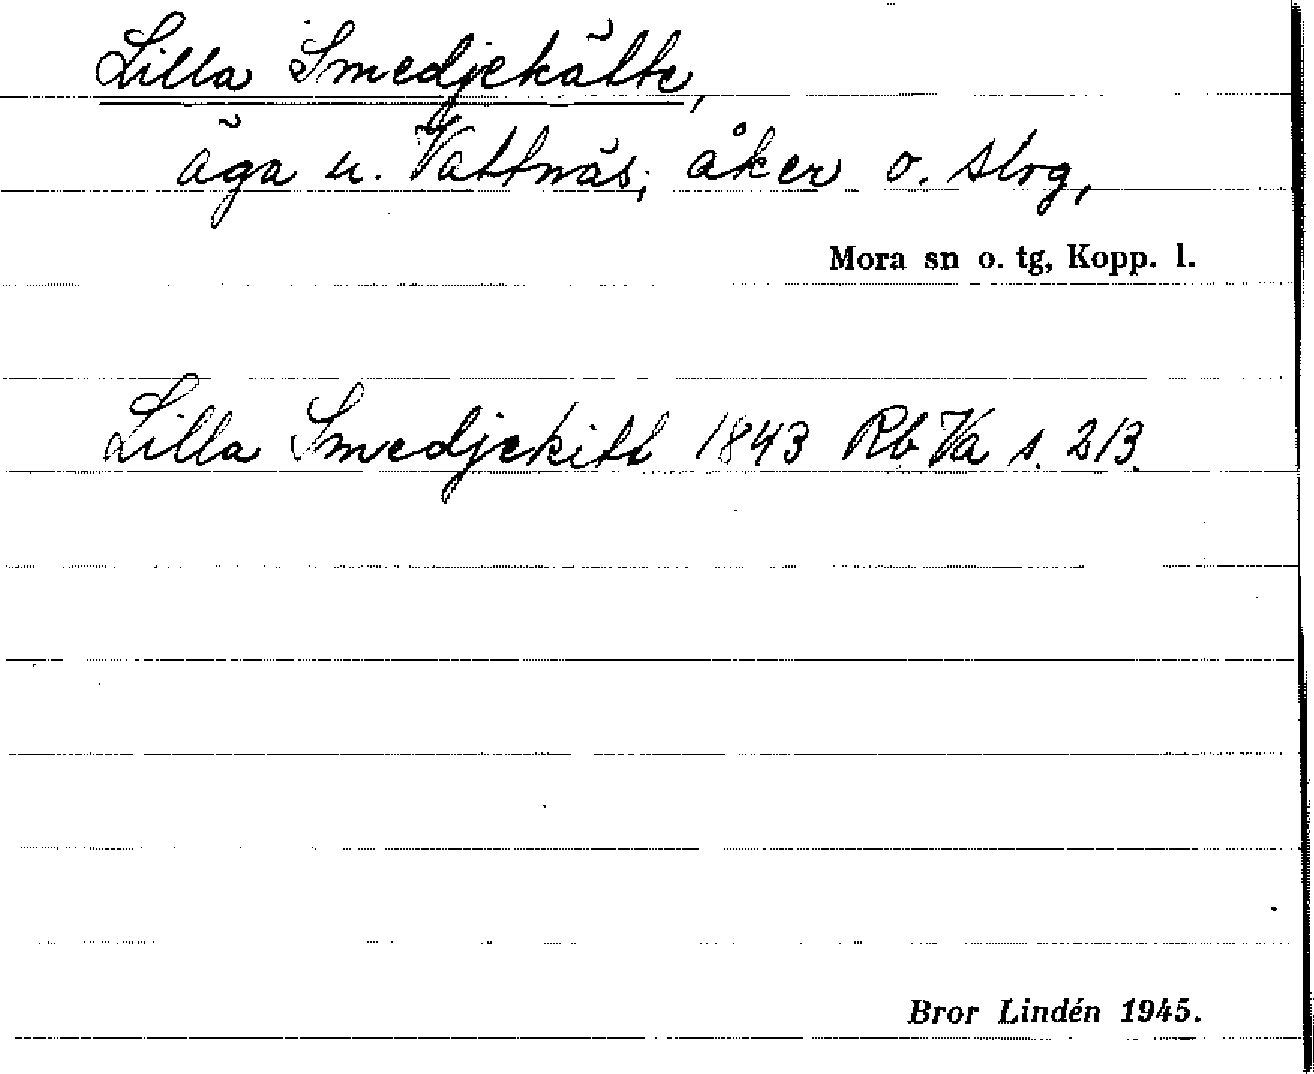 Lilla Smedjekätte,
äga u. Vattnäs; åker o. slog,
Mora sn o. tg, Kopp. l.
Lilla Smedjekitt 1843 Rb Va s. 213.
Bror Lindén 1945.